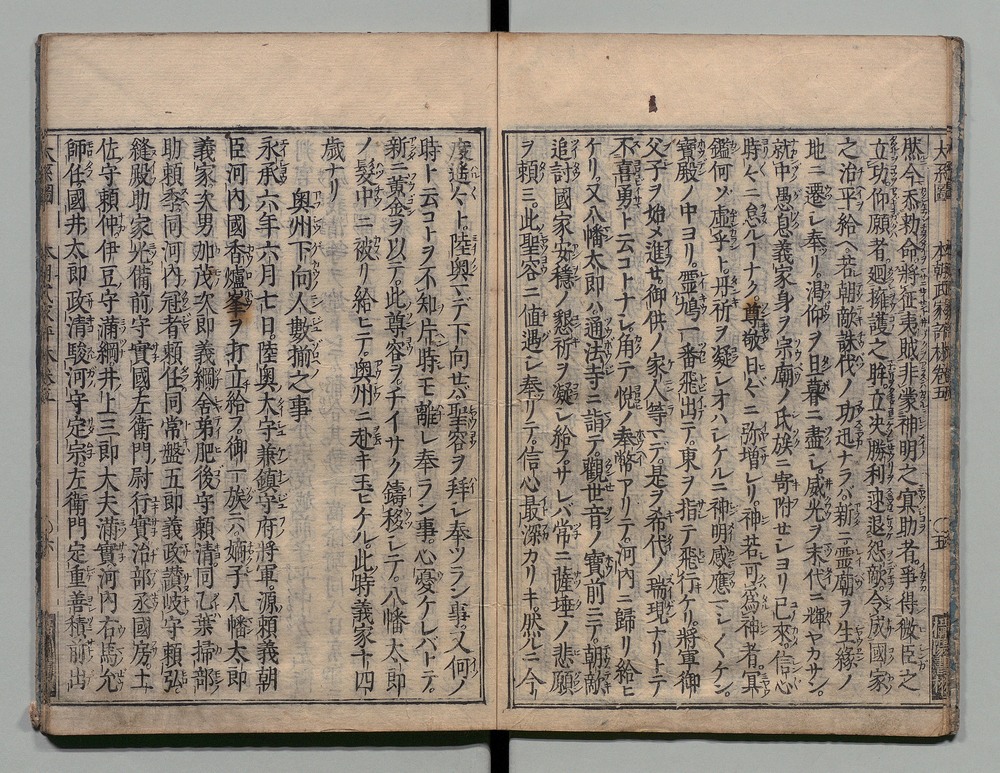 然今忝勅命將征夷賊非蒙神明之冥助者爭得微臣之
立功仰願者廻擁護之眸立决勝利迹退怨敵令成國家
之治平給ヘ若朝敵誅伐ノ功迅ナラバ新ニ霊廟ヲ生縁ノ
地ニ遷レ奉リ渇仰ヲ旦暮ニ盡レ威光ヲ末代ニ輝ヤカサン
就中愚息義家身ヲ宗廟ノ氏族ニ寄附セレヨリ已來信心
時々ニ怠ルヿナク尊敬日々ニ弥増レリ神若可為神者冥
鑑何ゾ虚乎ト丹祈ヲ凝レオハレケルニ神明感應ニレクケン
寳殿ノ中ヨリ霊鳩一番飛出テ東ヲ指テ飛行ケリ將軍御
父子ヲ始メ進セ御供ノ家人等マデ是ヲ希代ノ瑞現ナリトテ
不喜勇ト云コトナレ角テ悦ノ奉幣アリテ河内ニ歸リ給ヒ
ケリ又八幡太郎ハ通法寺ニ詣テ觀世音ノ寳前ニテ朝敵
追討國家安穩ノ懇祈ヲ凝レ給フサレバ常ニ薩埵ノ悲願
ヲ頼ミ此聖容ニ値遇レ奉リテ信心最深カリキ然ルニ今リ
度遙々ト陸奥マデ下向セバ聖容ヲ拜レ奉ツラン事又何ノ
時ト云コトヲ不知片時モ離レ奉ラン事心憂ケレバトテ
新ニ黄金ヲ以テ此尊容ヲチイサク鑄移レテ八幡太郎
ノ髪中ニ被リ給ヒテ奥州ニ赴キ玉ヒケル此時義家十四
歳ナリ
奥州下向人數揃之事
永承六年六月七日陸奥大守兼鎮守府將軍源頼義朝
臣河内國香爐峯ヲ打立給フ御一族ニハ嫡子八幡太郎
義家次男加茂次郎義綱舎弟肥後守頼清同乙葉掃部
助頼季同河内冠者頼任同常盤五郎義政讃岐守頼弘
縫殿助家光備前守實國左衛門尉行實治部丞國房土
佐守頼仲伊豆守滿綱井上三郎大夫滿實河内右馬允
師任國井太郎政清駿河守定宗左衛門定重善積前出